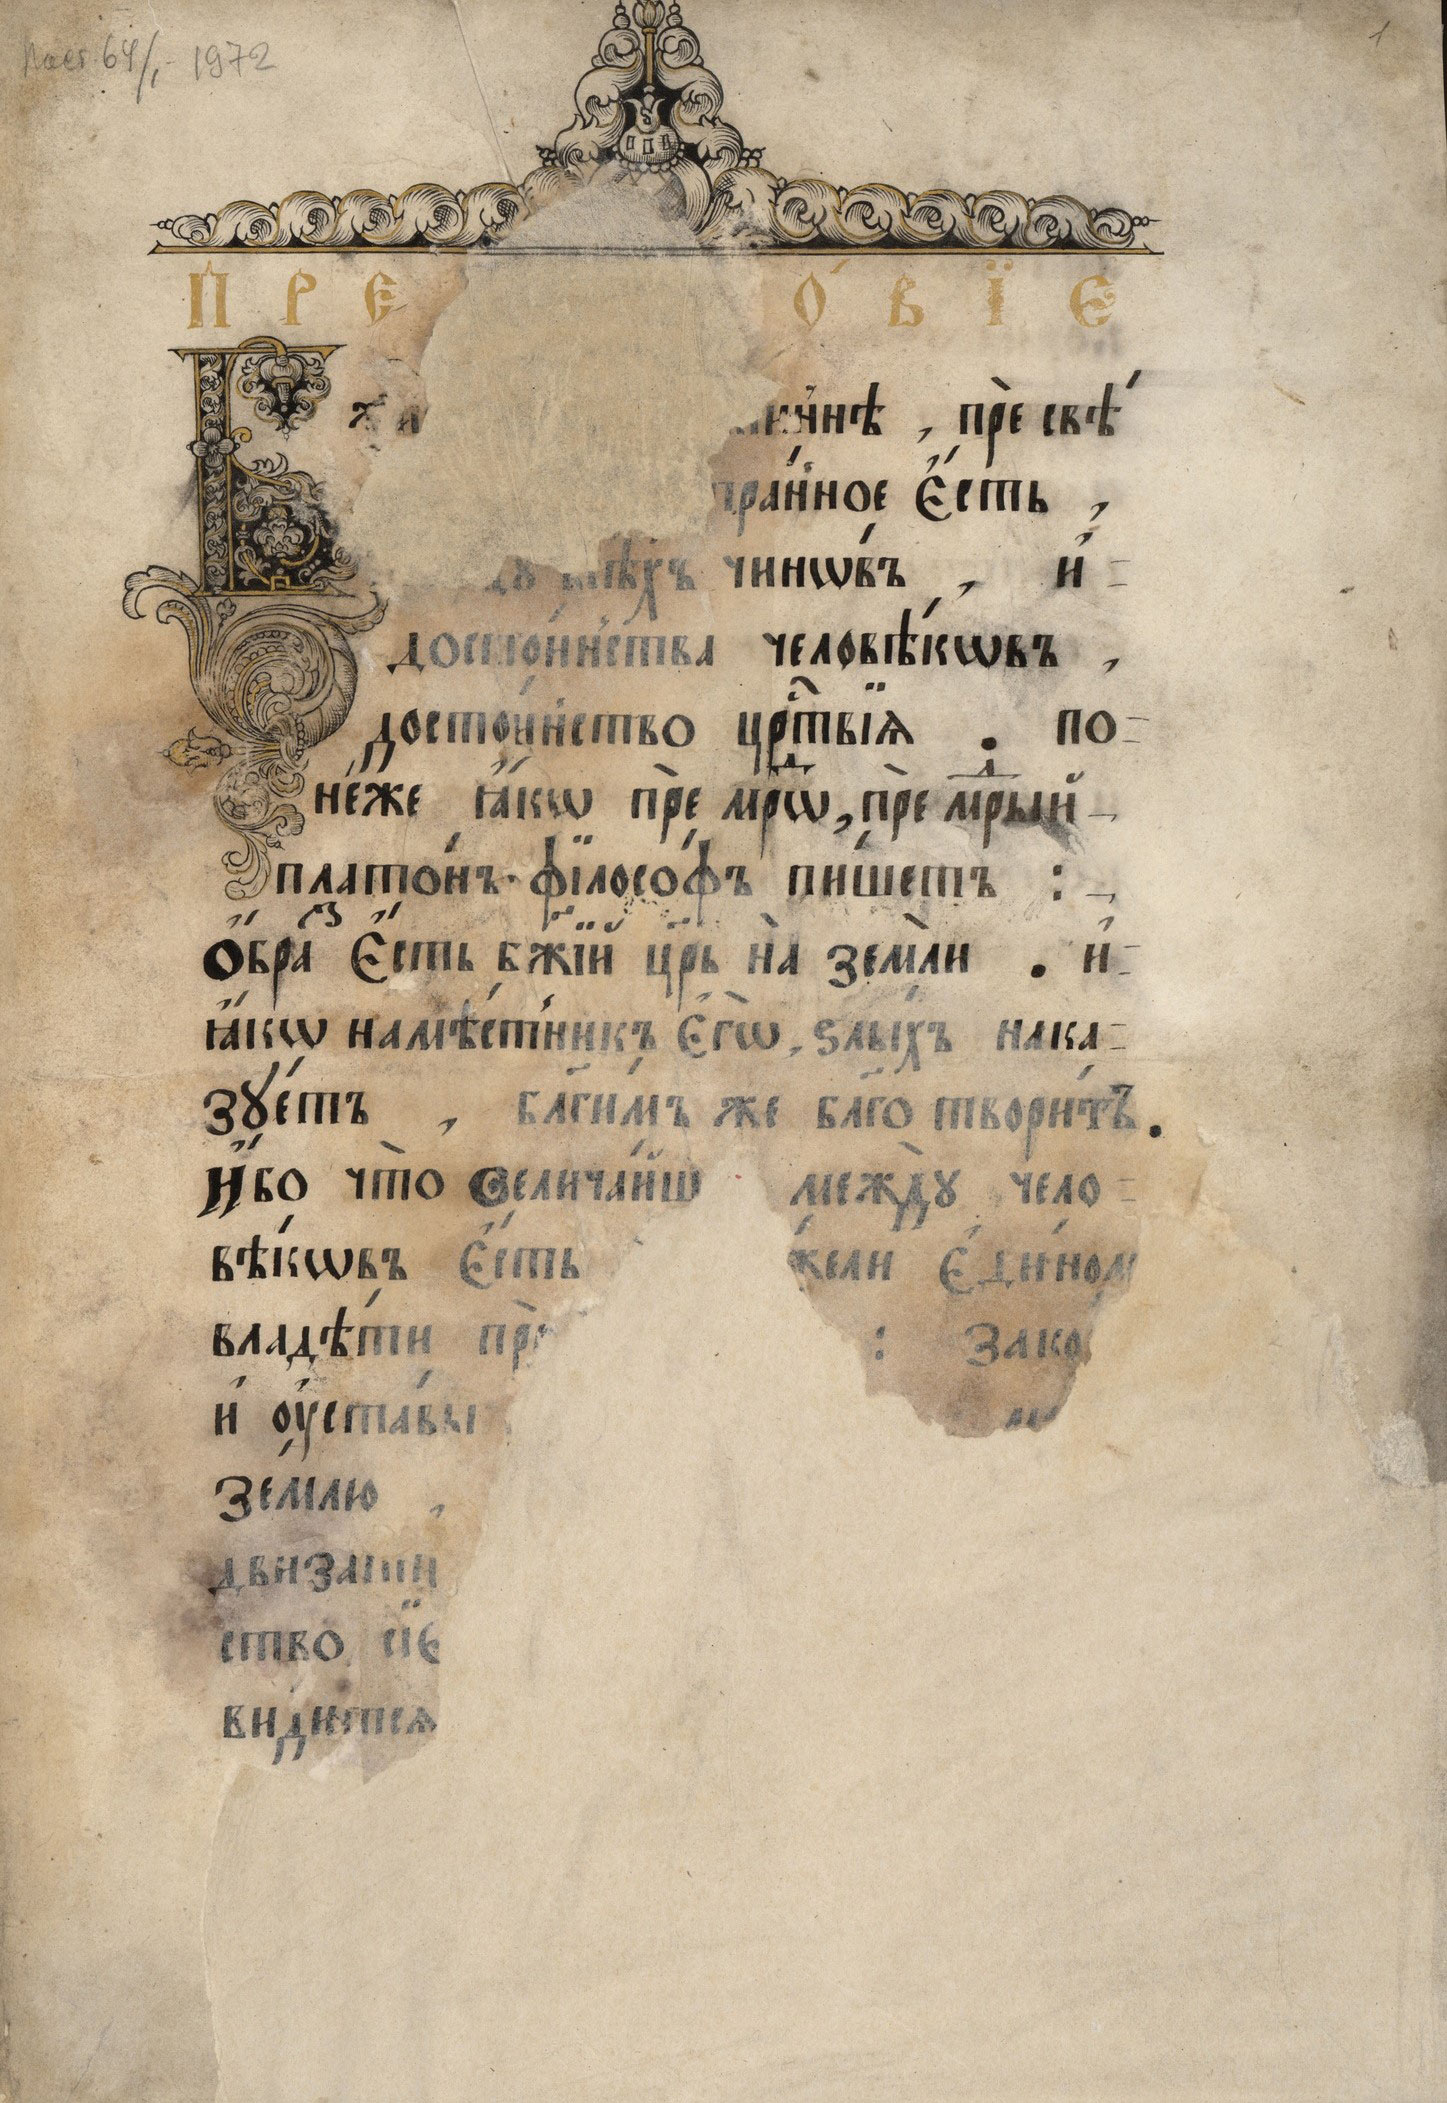 Пост. 64/1-1972
1
ПРЕ ОВЇЕ
Б
ччнѣ, пресвѣ
раиное Єсть,
ду всѣхъ чинѡвъ, и҆=
досто́йнства человѣ́кѡвъ,
досто́инство црⷭ҇твїѧ. по=
не́же ꙗ҆́кѡ пре мрⷣѡ, пре мрⷣый
плато́нъ фїлосо́фъ пи́шетъ:
Ѻ҆браⷥ Є҆́сть бж҃їй цр҃ь на̀ земли. и҆=
ꙗ҆́кѡ намѣ́стникъ Є҆гѡ̀, ѕлы́хъ нака=
зꙋ́етъ, бл҃ги́мъ же бл҃го твори́тъ.
И҆́бо что̀ велича́йш междꙋ чело=
вѣ́кѡвъ Є҆́сть жели Є҆ди́ном
владѣ́ти пре : Зако
и҆ ᲂу҆ста́вы
Зе́млю,
двизати
ство сїе
ви́дитсѧ